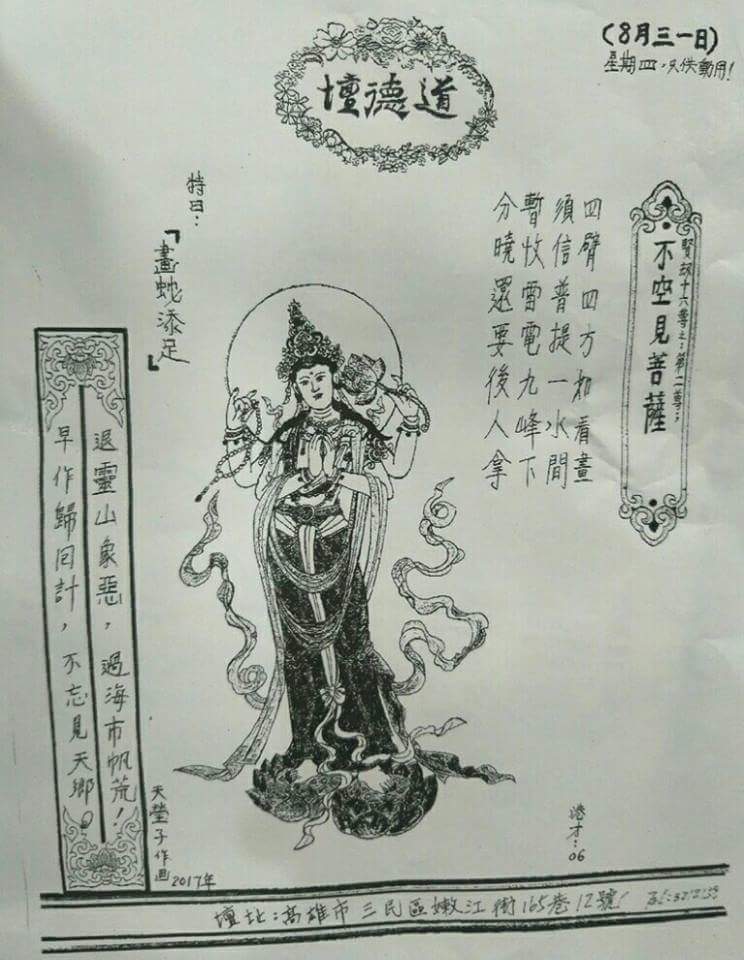 道德壇
(8月三一日)
星期四，只供動用！
賢劫十六尊之：第二尊：
不空見菩薩
四臂四方如看畫
須信普提一水間
暫收雷電九峰下
分曉還要後人拿
特曰：
「畫蛇添足」
退靈山象惡，過海市帆荒！
早作歸回計，不忘見天鄉。
天瑩子作画
2017年
港才：06
壇址：高雄市三民區嫩江街165巷12號！